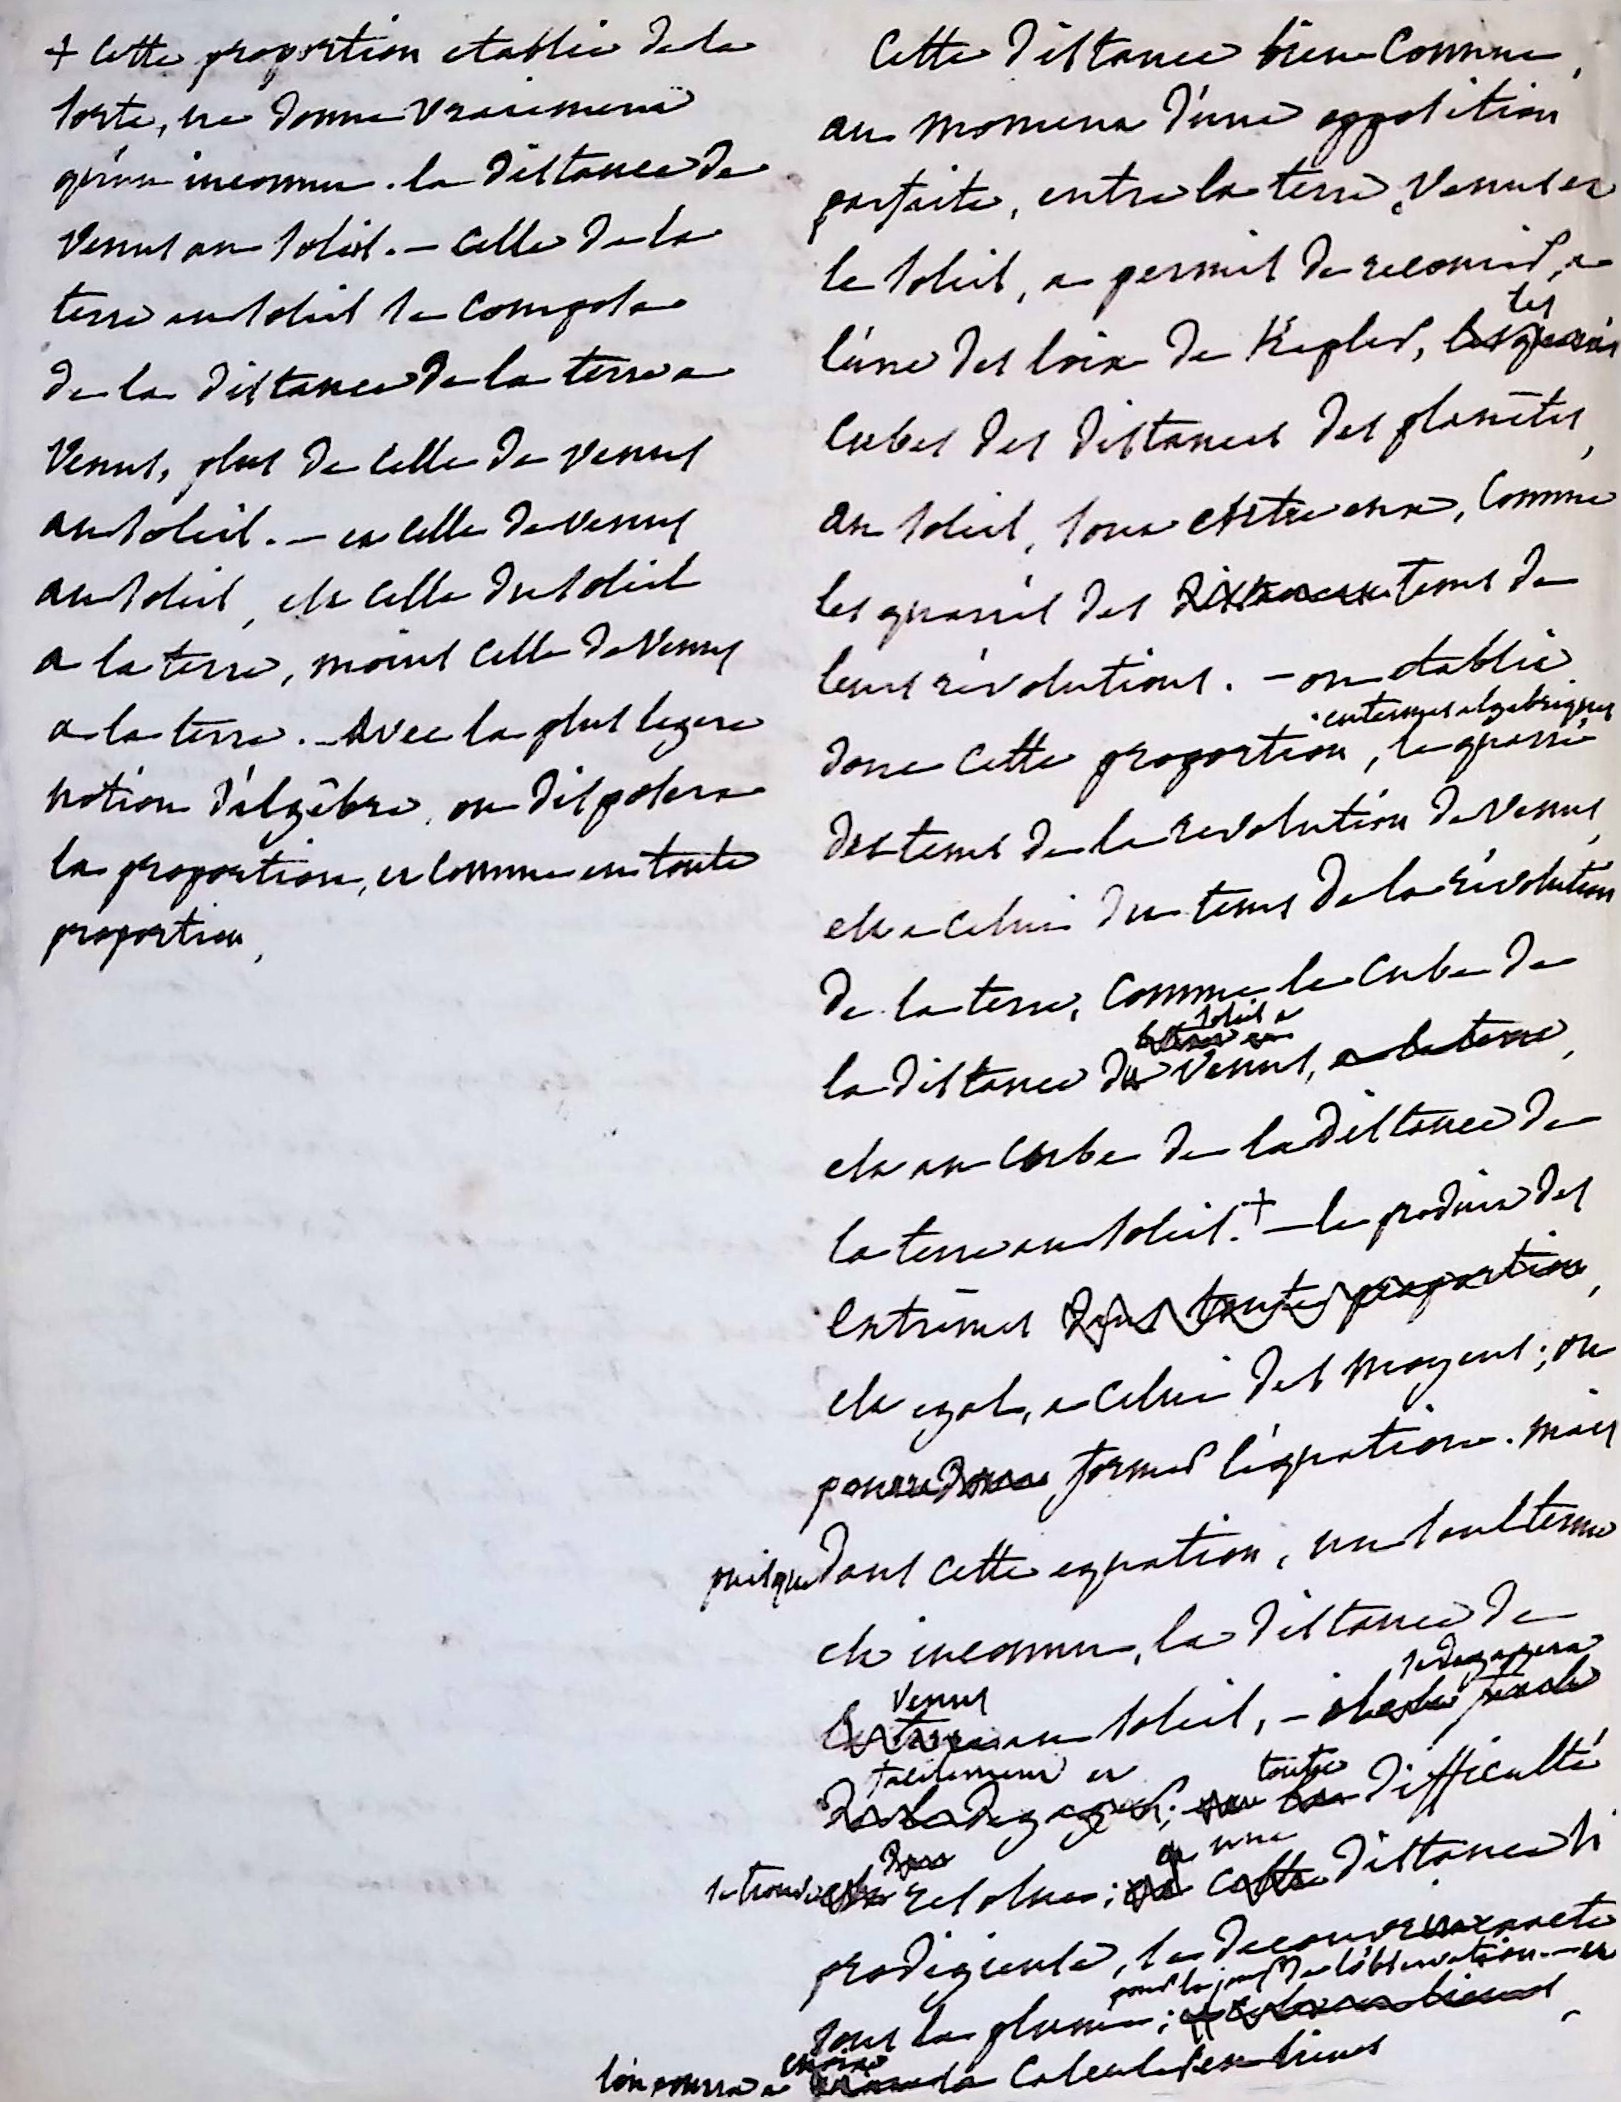 + Cette proportion etablie de la
sorte, ne donne vraiement
qu'un inconnu. la distance de
Venus au soleil. — Celle de la
terre au soleil se compose
de la distance de la terre a
Venus, plus de celle de Venus
au soleil. — et celle de venus
au soleil, est celle du soleil
a la terre, moins celle de Venus
a la terre. — Avec la plus legere
notion d'algêbre, on disposera
la proportion, et comme en toute
proportion,
Cette distance bien connue,
au moment d'une opposition
parfaite, entre la terre, Venus et
le soleil, a permis de
l'une des loix de Kepler, les
cubes des distances des planètes,
au soleil, sont entre eux, comme
les quarrés des distances tems de
leurs révolutions. — on etablit
en termes algebriques
donc cette proportion, le quarré
des tems de la revolution de Venus,
est a celui du tems de la révolution
de la terre, comme le cube de
soleil a
la distance du Venus, a la terre,
est au cube de la distance de
la terre au soleil. + — le produit des
extrêmes dans toute proportion,
est egal, a celui des moyens; on
pourra donc former l'équation. mais
puisque dans cette equation, un seul terme
est inconnu, la distance de
se degagera
Venus
la terre au soleil, — il est facile
facilement et toute
de la degager; la difficulté
donc une
se trouve est resolue; et cette distance si
prodigieuse, se decouvre
pour le jour de l'observation — et
sous la plume;
l'on pourra a calculer en lieues